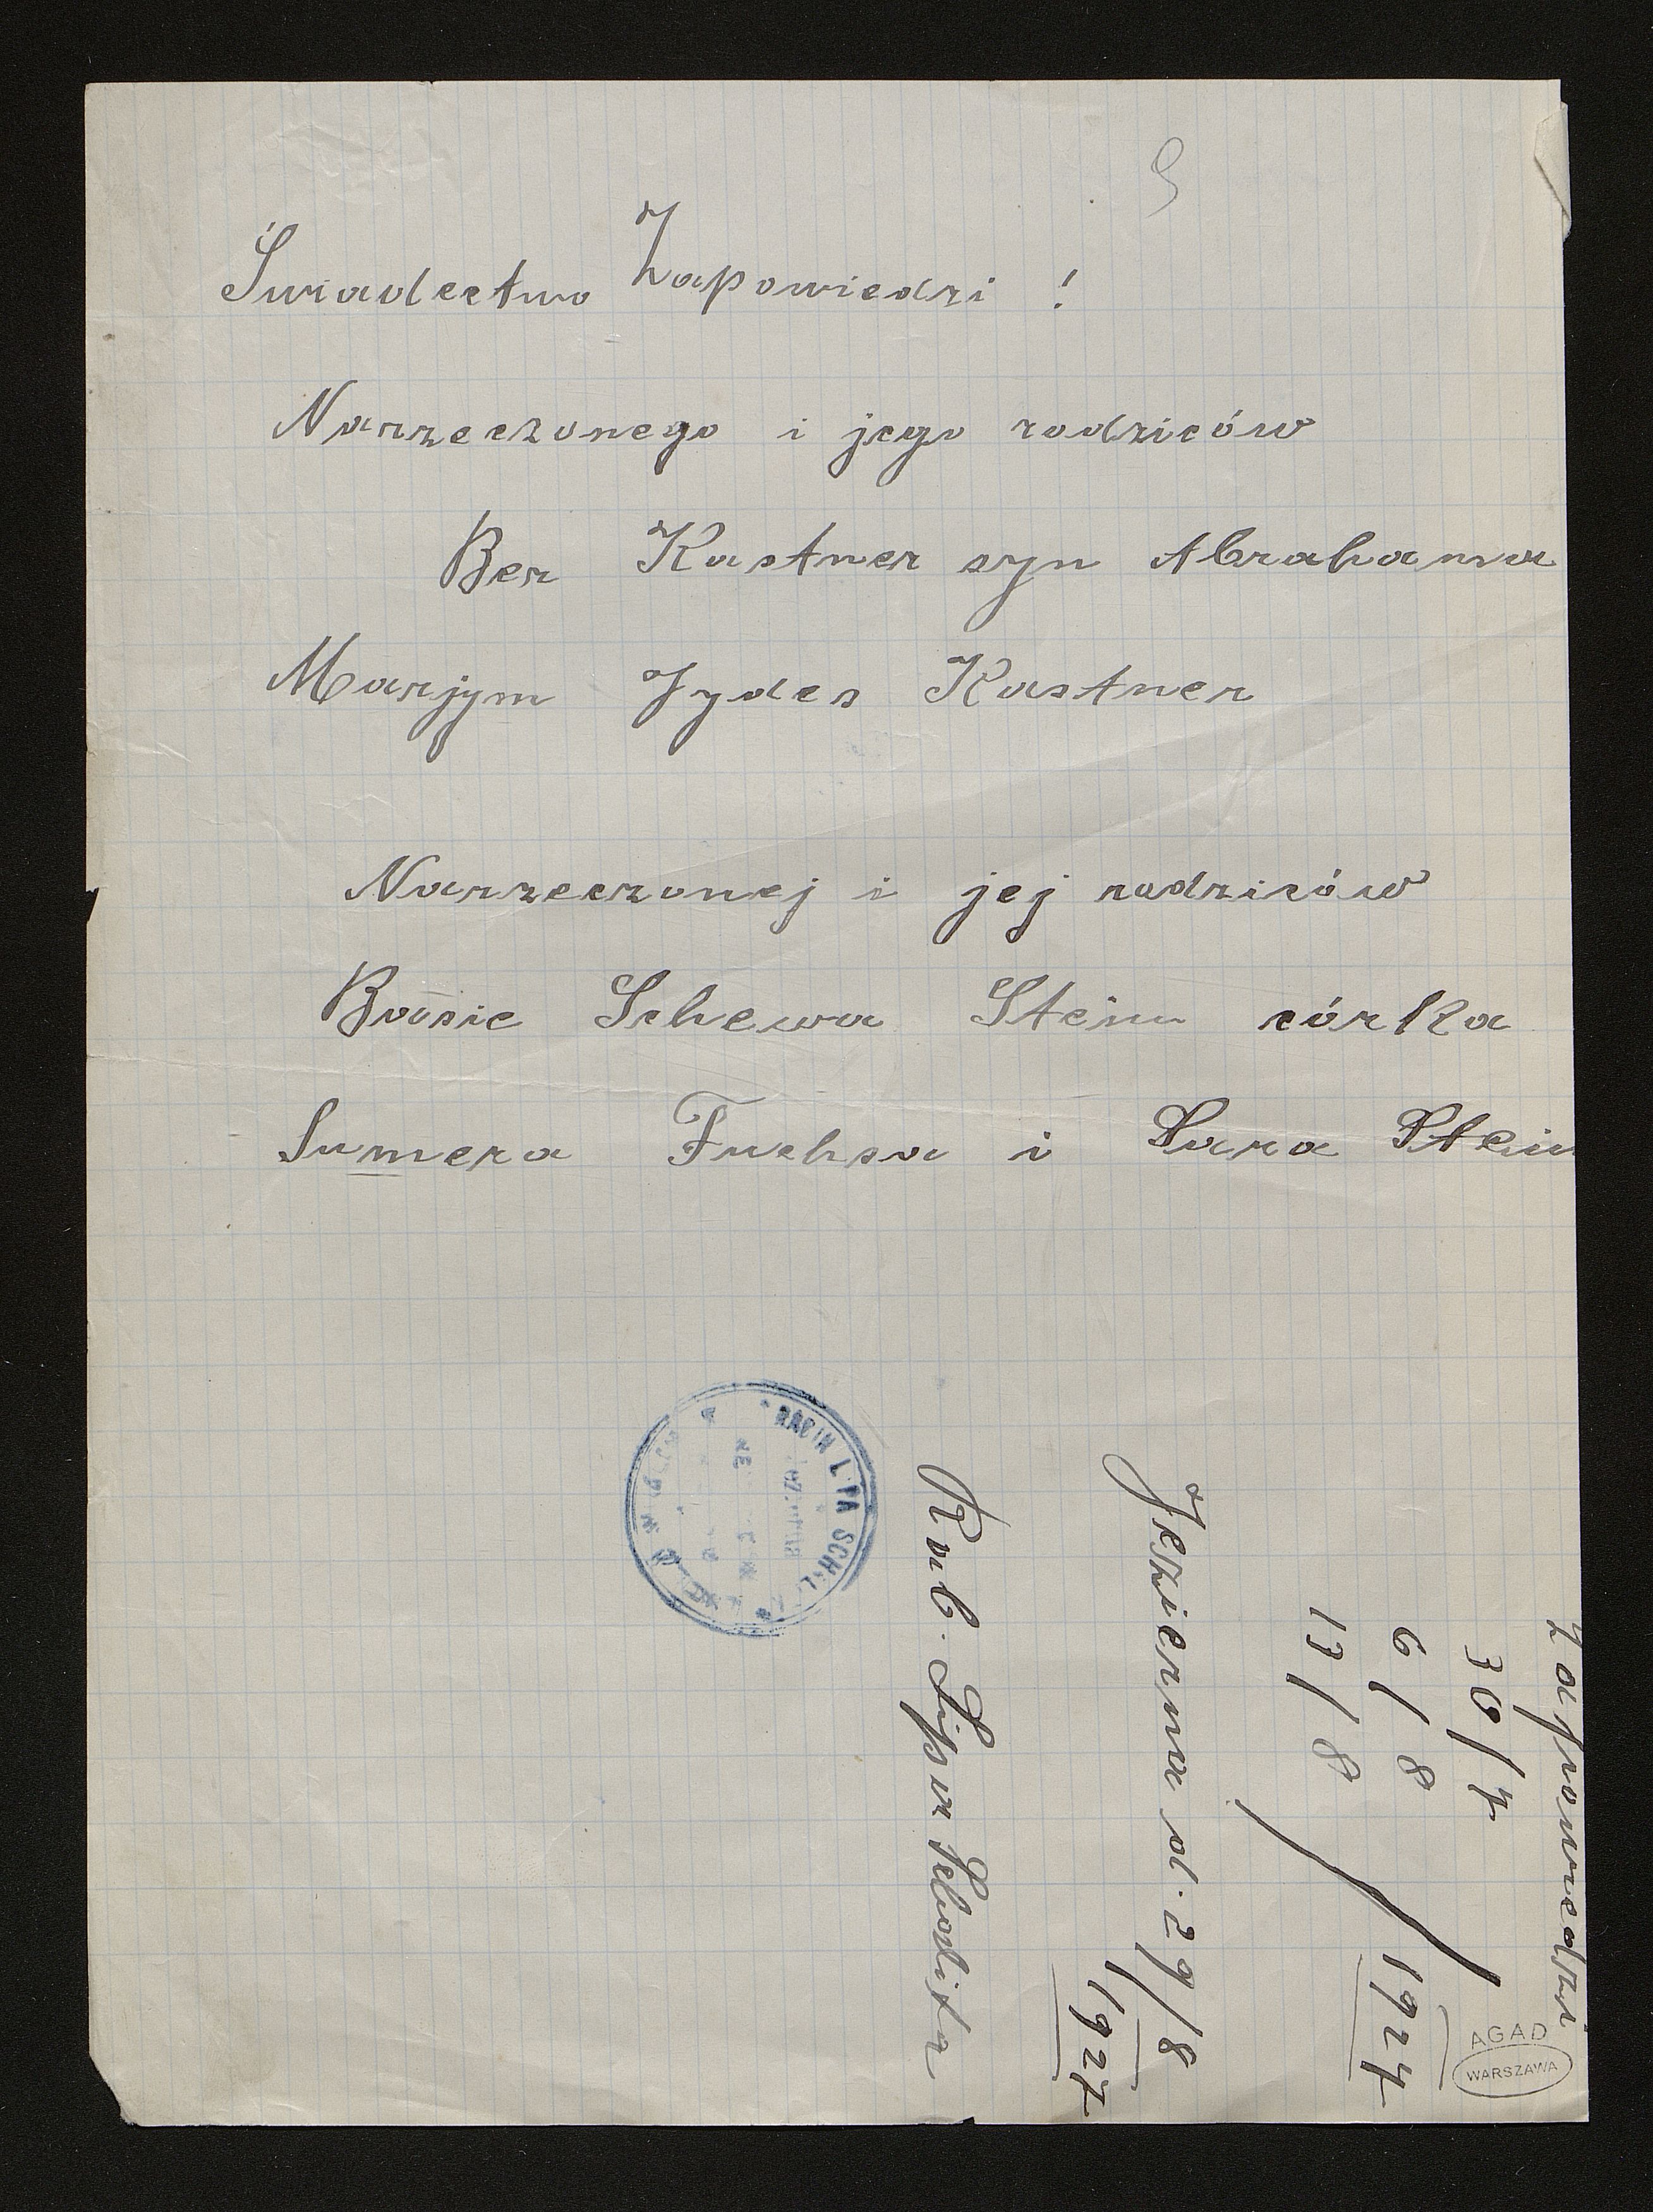 Świadectwo Zapowiedzi !
Narzeczonego i jego rodziców
Ber Kastner syn Abrahama
Marjym Jydes Kastner
Narzeczonej i jej rodziców
Basie Schewa Stein córka
Sumera Fuchsa i Sara Stein
Zapowiedzi
30/7
6/8
13/8
1927
Jezierna d. 29/8
1927
Rab. Lipa Schorlista
RABIN LIPA SCH
AGAD
WARSZAWA